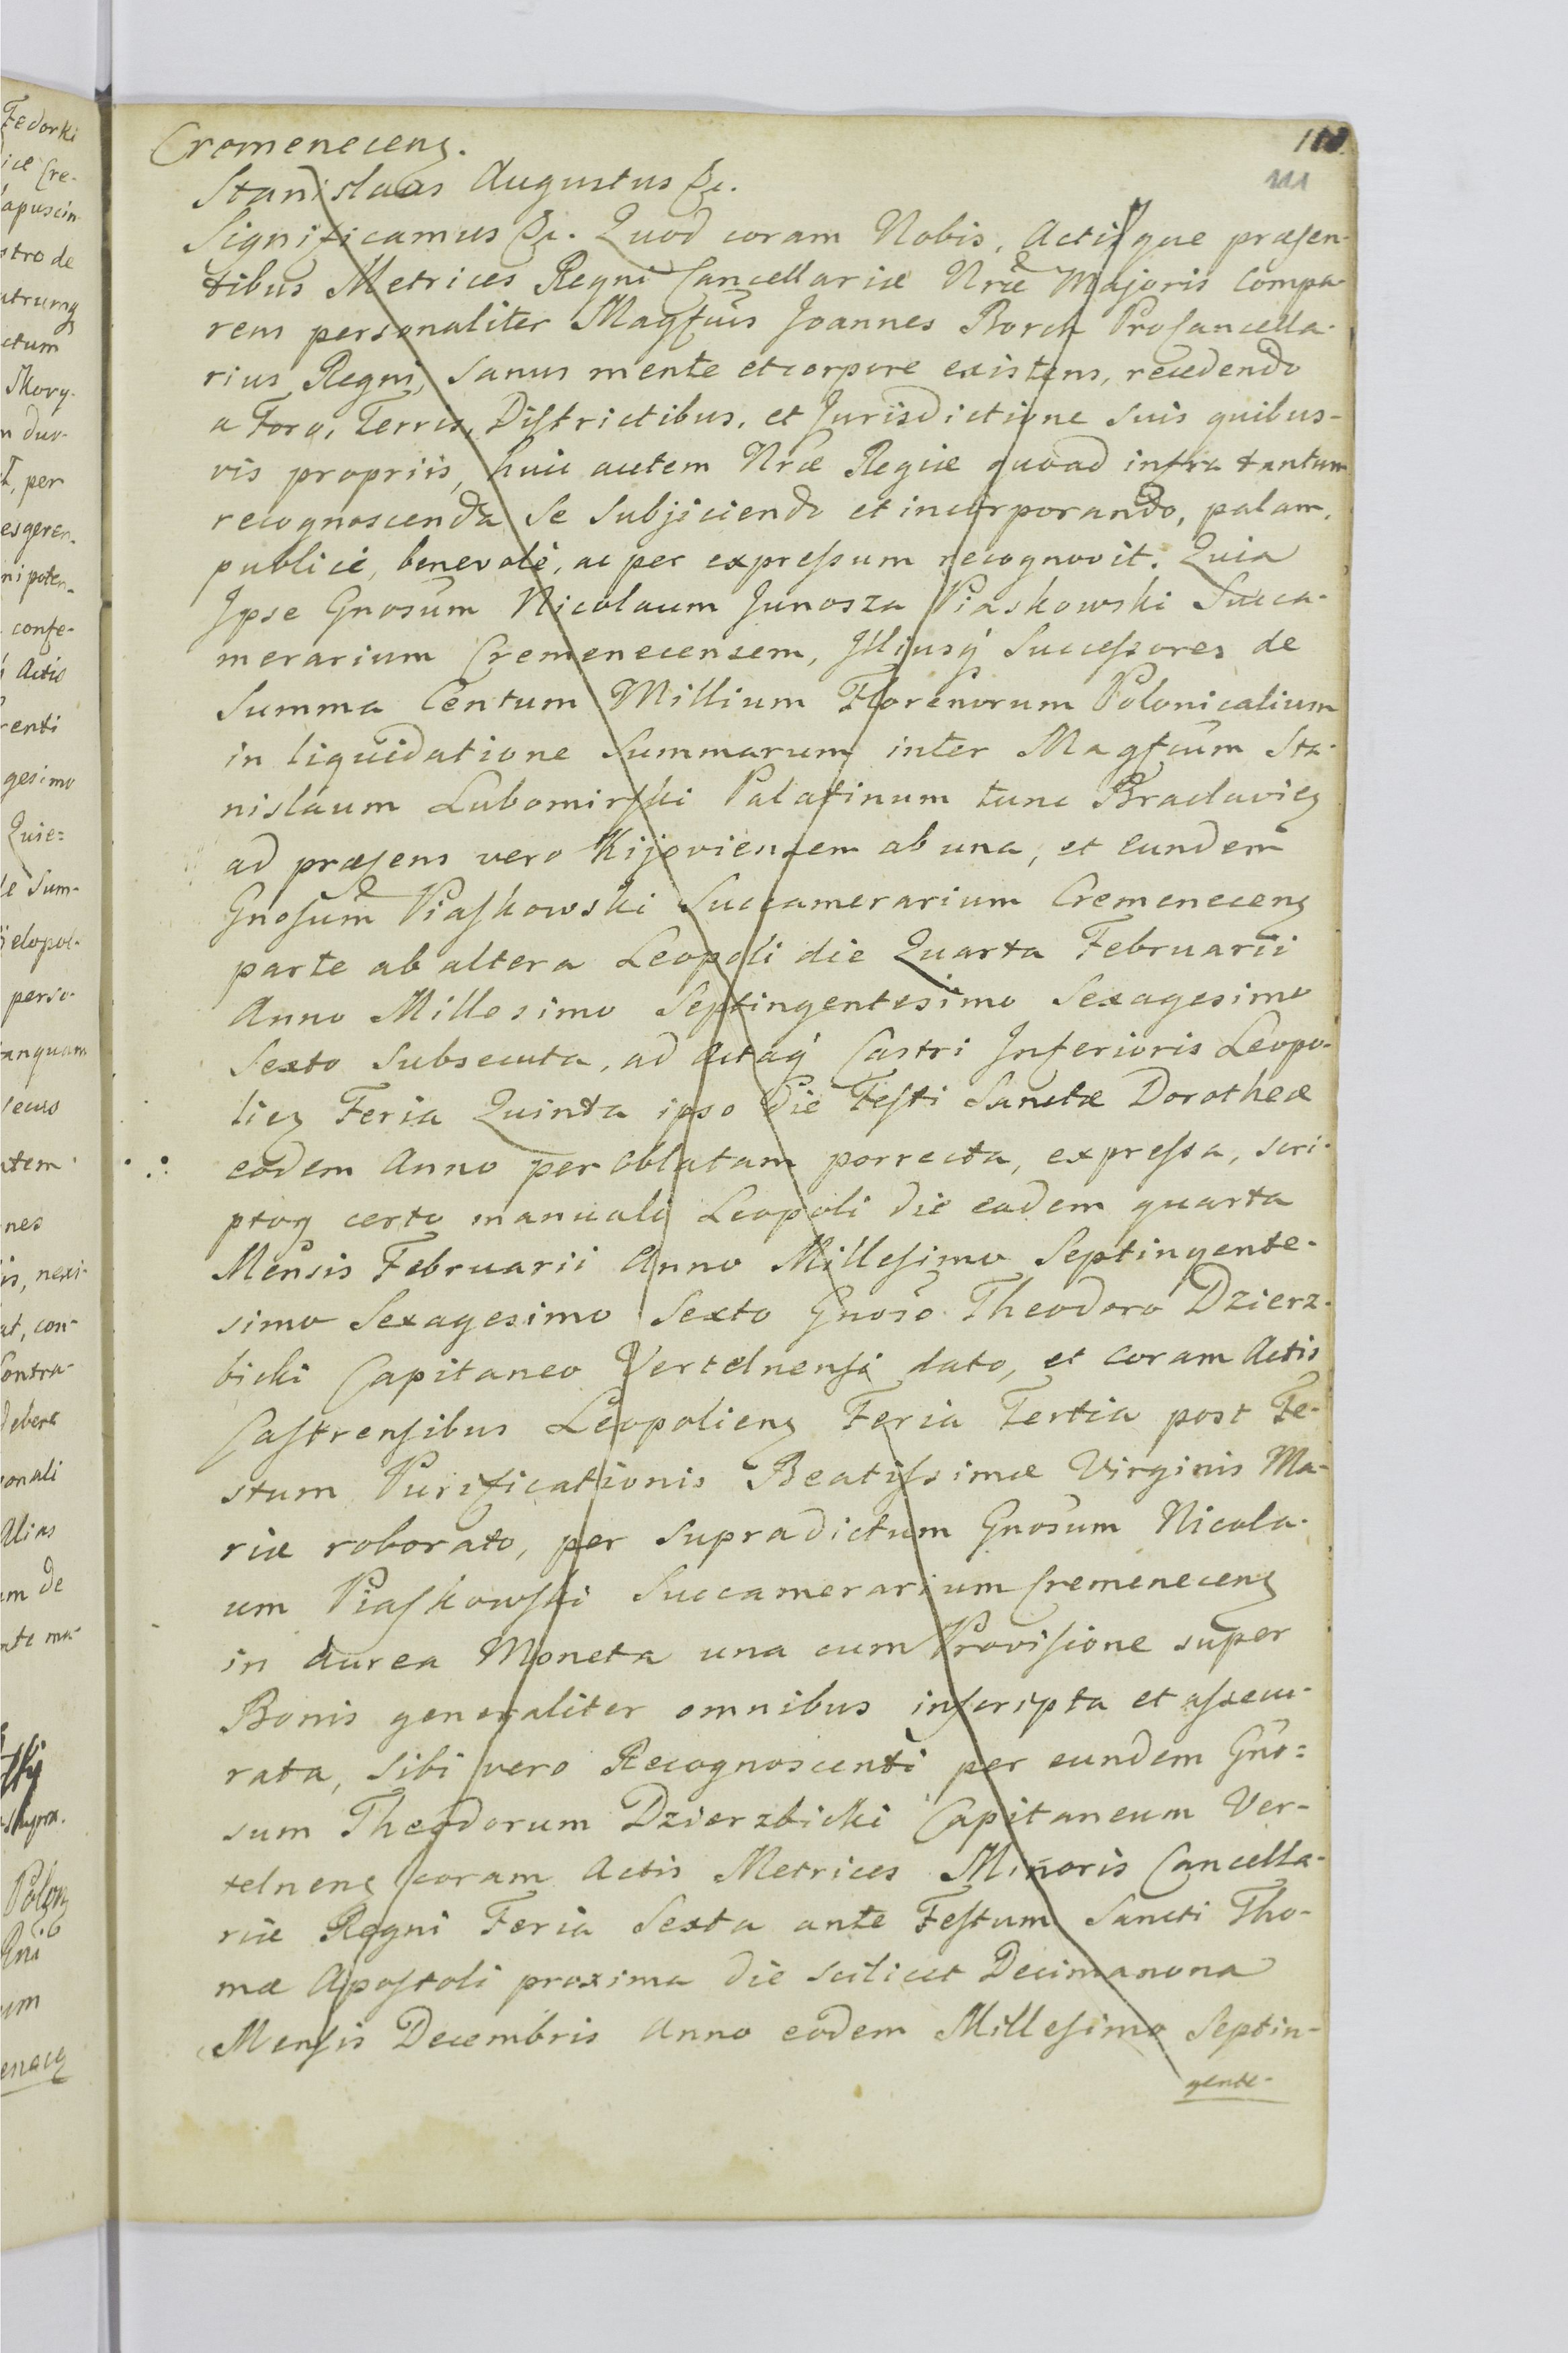 Cremeneceng.
111
Stanislaus Augustus &c.
Significamus &c. Quod coram Nobis, Actisque præsen-
tibus Metrices Regni Cancellariæ Nræ Majoris compa-
rens personaliter Magfcus Joannes Borch ProCancella-
rius Regni, sanus mente et corpore existens, recedendo
a Foro, Terris, Districtibus, et Jurisdictione suis quibus-
vis propriis, huic autem Nræ Regiæ quoad infra tantum
recognoscenda se subjiciendo et incorporando, palam,
publicè, benevolè, ac per expressum recognovit. Quia
Ipse Gnosum Nicolaum Junosza Piaskowski Succa-
merarium Cremenecensem, Illiusq́ Successores de
Summa Centum Millium Florenorum Polonicalium
in liquidatione Summarum inter Magfcum Sta-
nislaum Lubomirski Palatinum tunc Braclavieg
ad præsens vero Kijoviensem ab una, et eundem
Gnosum Piaskowski Succamerarium Cremeneceng
parte ab altera Leopoli die Quarta Februarii
Anno Millesimo Septingentesimo Sexagesimo
Sexto subsecuta, ad Actaq́ Castri Inferioris Leopo-
lieg Feria Quinta ipso die Festi Sanctæ Dorotheæ
eodem Anno per Oblatam porrecta, expressa, scri-
ptoq certo manuali Leopoli die eadem quarta
Mensis Februarii Anno Millesimo Septingente-
simo Sexagesimo Sexto Gnoso Theodoro Dzierz-
bicki Capitaneo Vertelnensi dato, et coram Actis
Castrensibus Leopolieng Feria Tertia post Fe-
stum Purificationis Beatissimæ Virginis Ma-
riæ roborato, per supradictum Gnosum Nicola-
um Piaskowski Succamerarium Cremeneceng
in aurea Moneta una cum Provisione super
Bonis generaliter omnibus inscripta et assecu-
rata, sibi vero Recognoscenti per eundem Gno=
sum Theodorum Dzierzbicki Capitaneum Ver-
telneng coram Actis Metrices Minoris Cancella-
riæ Regni Feria Sexta ante Festum Sancti Tho-
mæ Apostoli proxima die scilicet Decimanona
Mensis Decembris Anno eodem Millesimo Septin-
gente-